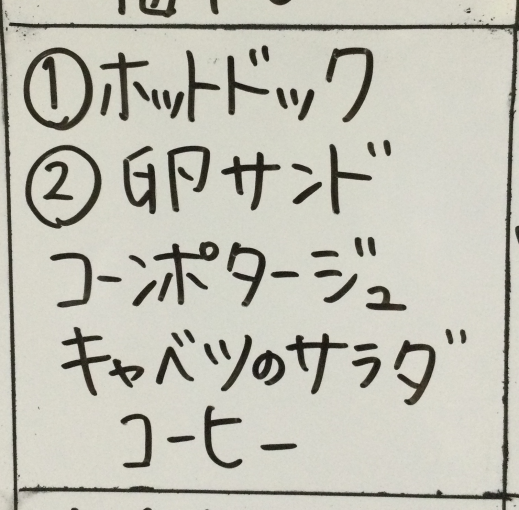 ①ホットドック
②卵サンド
コーンポタージュ
キャベツのサラダ
コーヒー